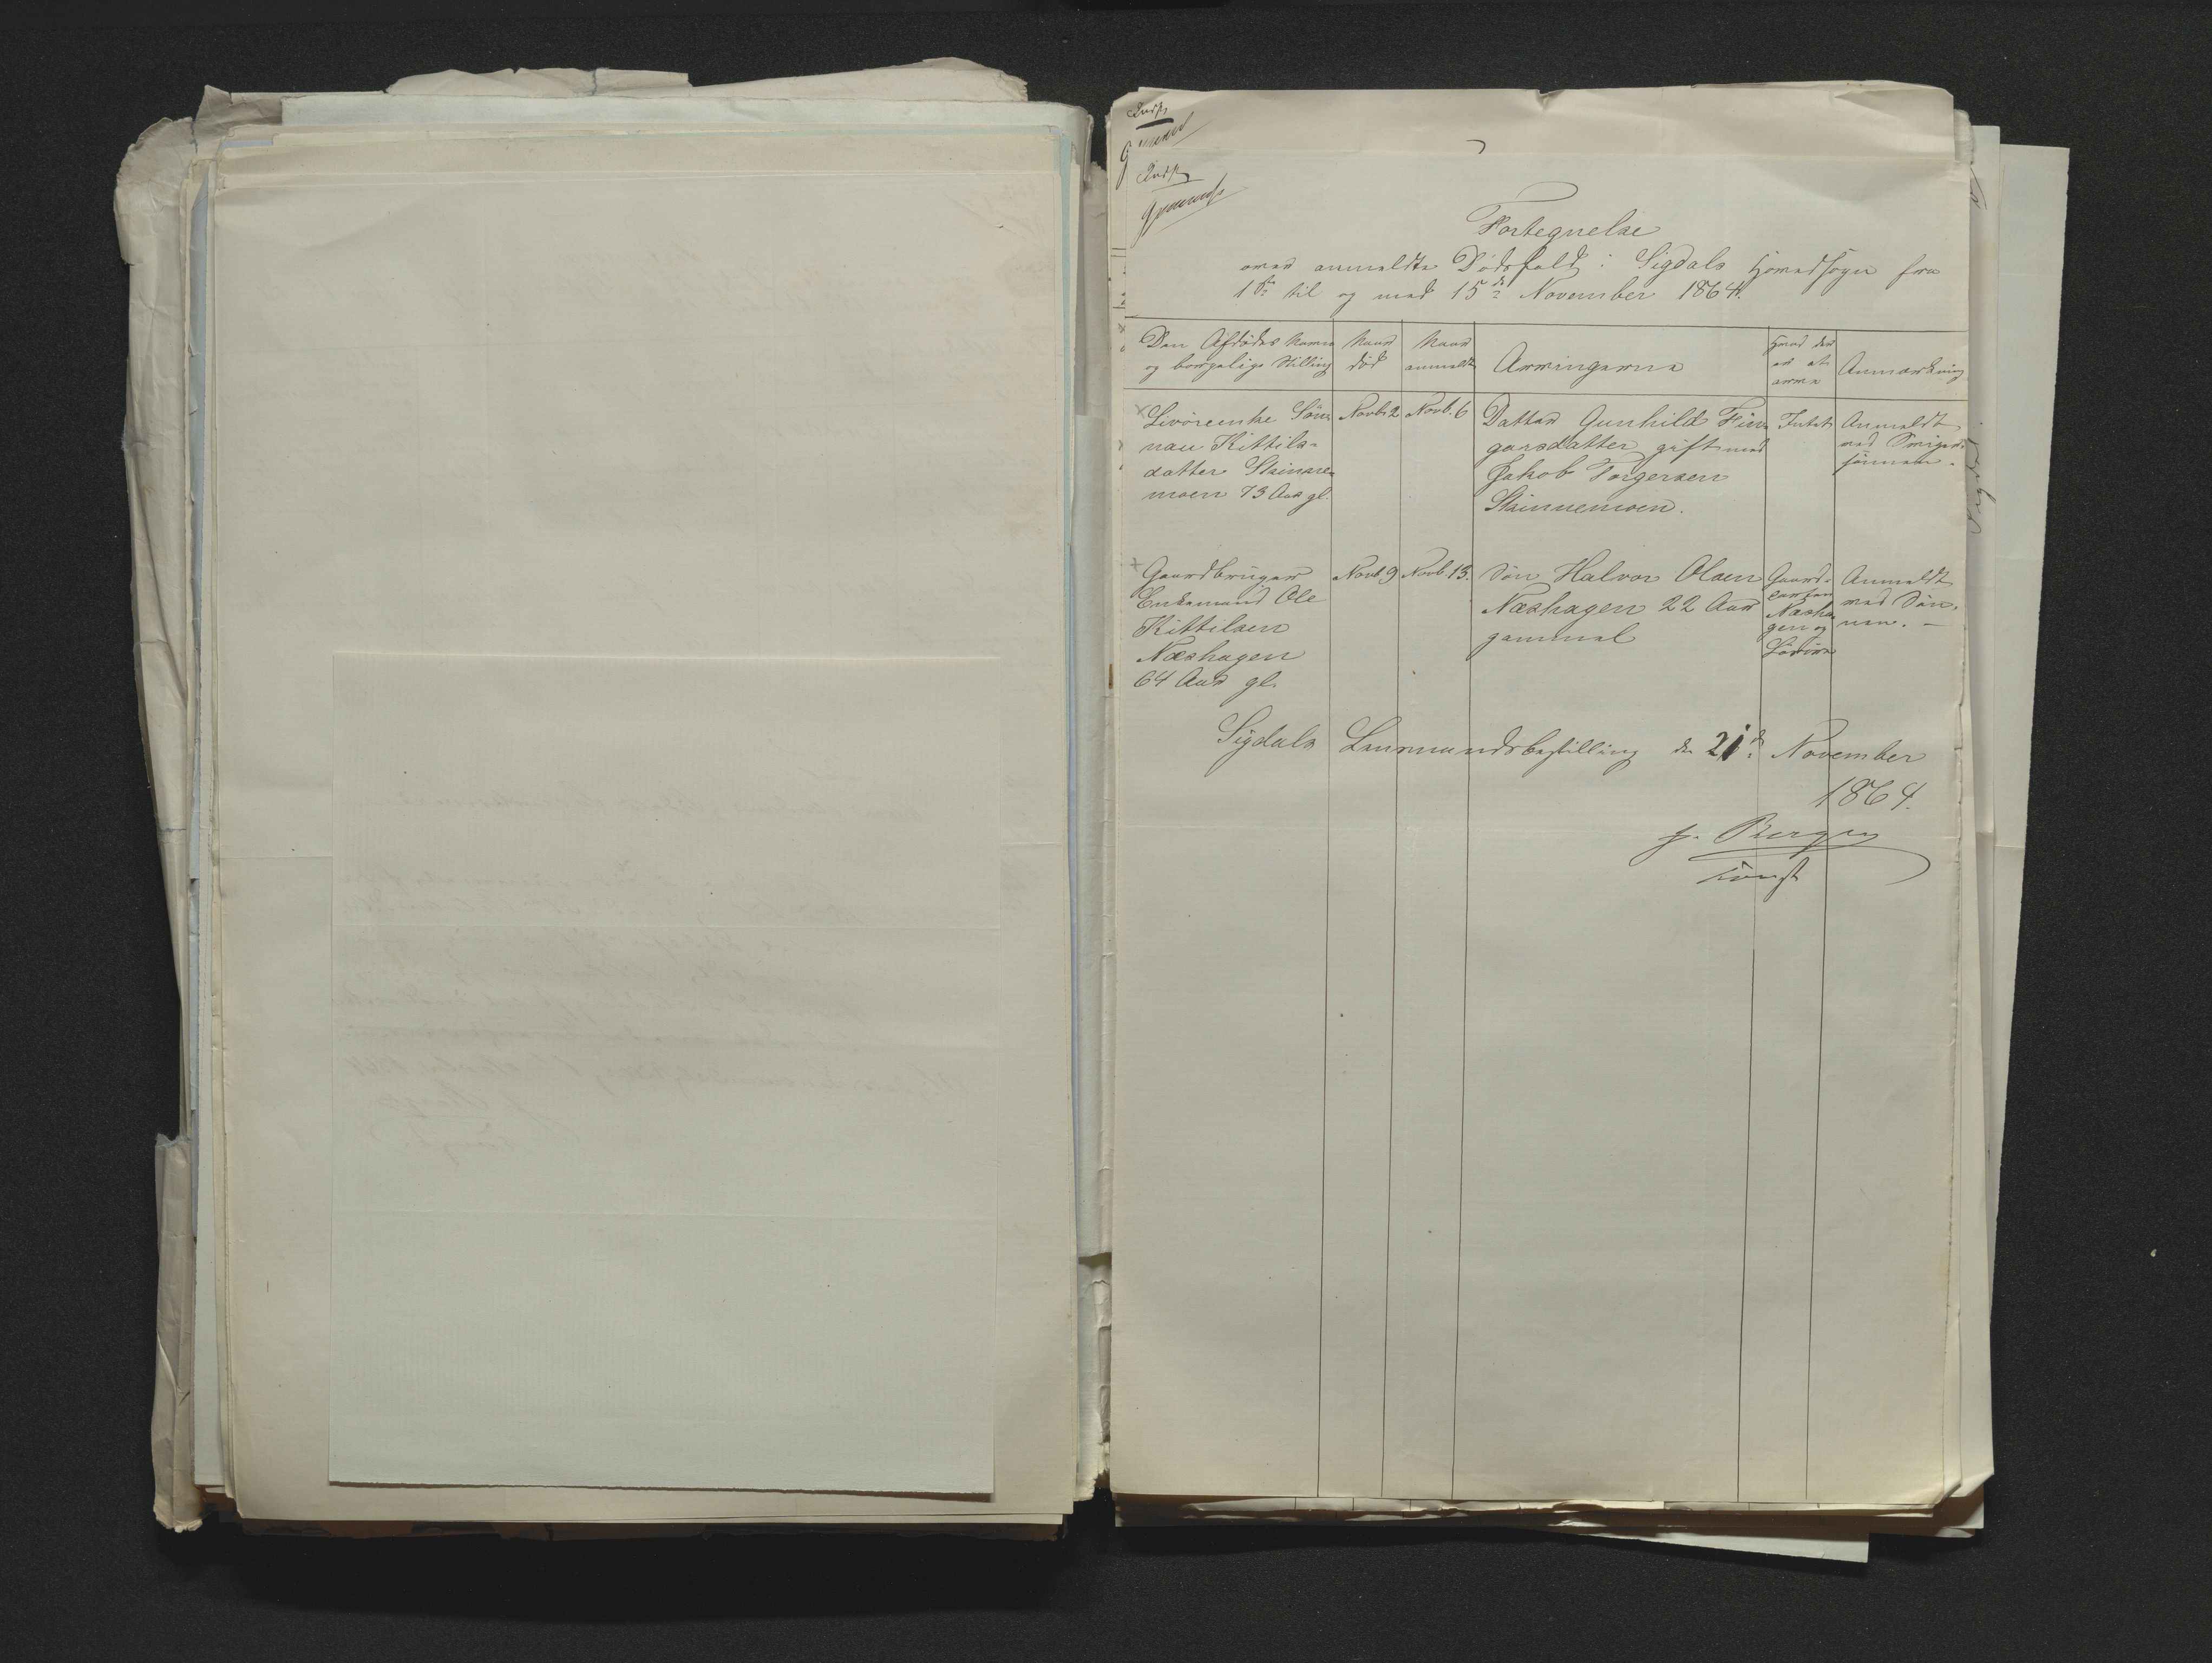 Indf.
Indf.
Fortegnelse
over anmeldte Dødsfald i Sigdals Hovedsogn fra
1ste til og med 15de November 1864.
Den Afdødes Navn
og borgelige Stilling
Naar
død
Naar
anmeldt
Arvingerne
Hvad der
er at
arve
Anmærkning
Livørenke Søn-
nau Kittils-
datter Skinnes-
moen 73 Aar gl.
Novb. 2
Novb. 6
Datter Gunhild Fin-
garsdatter gift med
Jakob Torgersen
Skinnemoen.
Intet
Anmeldt
ved Sviger-
sønnen.
Gaardbruger
Enkemand Ole
Kittelsen
Næshagen
64 Aar gl.
Novb. 9
Novb. 13.
Søn Halvor Olsen
Næshagen 22 Aar
gammel
Gaard-
parten
Næsha
gen og
Løsøre
Anmeldt
ved Søn-
nen. —
Sigdals Lensmandsbestilling den 21de November
1864.
konst